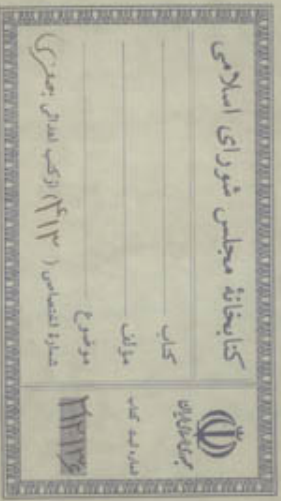 کتابخانهٔ مجلس شورای اسلامی
کتاب
مؤلف
موضوع
شمارهٔ اختصاصی ( ۴۱۳ ) از کتب اهدائی
جمهوری اسلامی ایران
شماره ثبت کتاب